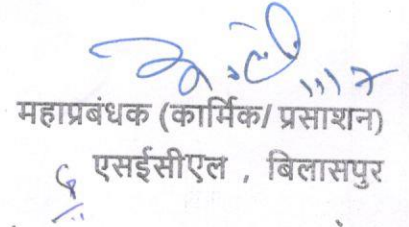 महाप्रबंधक (कार्मिक/ प्रसाशन)
एसईसीएल , बिलासपुर